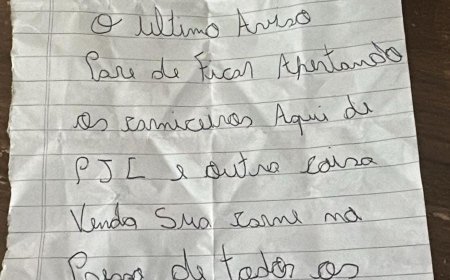 O ultimo Aviso
Pare de ficar Apertando
os carniceiros Aqui de
PJL e outra coisa
Venda Sua carne no
de todos os